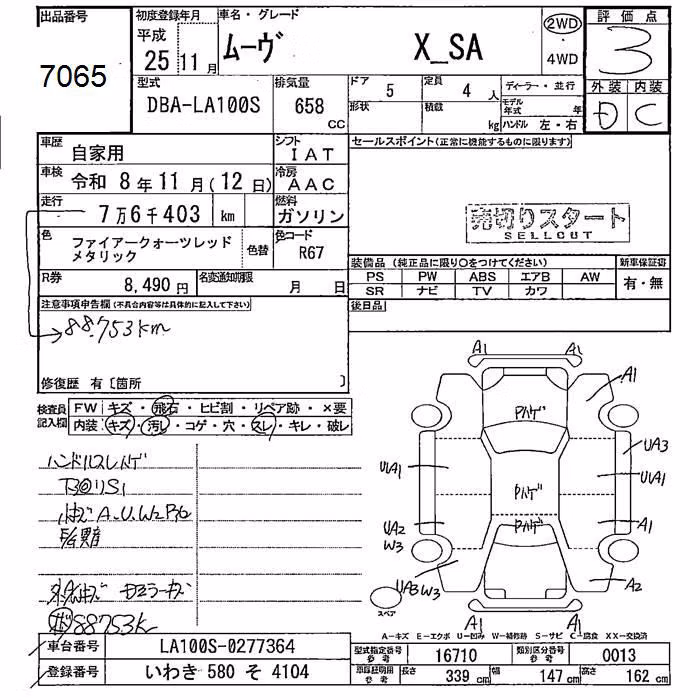 出品番号
7065
初度登録年月
平成
25 11月
車名・グレード
ムーヴ X_SA
2WD
・
4WD
評価点
3
外装 内装
D C
型式
DBA-LA100S
排気量
658
CC
ドア 5
定員 4 人
形状
積載 kg
ディーラー・並行
モデル年式 年
ハンドル 左・右
車歴
自家用
シフト
IAT
セールスポイント(正常に機能するものに限ります)
車検
令和 8年11月(12日)
冷房
AAC
走行
7万6千403 km
燃料
ガソリン
売切りスタート
SELLOUT
色
ファイアークォーツレッド
メタリック
色替
色コード
R67
装備品(純正品に限り○をつけてください)
新車保証書
PS PW ABS エアB AW
SR ナビ TV カワ
有・無
R券
8,490円
名変通知期限
月 日
後日品
注意事項申告欄(不具合内容等は具体的に記入して下さい)
88.753km
修復歴 有[箇所 ]
検査員
記入欄
FW キズ・飛石・ヒビ割・リペア跡・×要
内装 キズ・汚レ・コゲ・穴・スレ・キレ・破レ
ハンドルスレハゲ
88753K
A1 A1
A1
A1
Pハゲ
UA3
UA1
UA1
Pハゲ
UA2
W3
Pハゲ
A1
UA3 W3
A2
スペア
A1 A1
A-キズ E-エクボ U-凹み W-補修跡 S-サビ C-腐食 XX-交換済
車台番号
LA100S-0277364
登録番号
いわき 580 そ 4104
型式指定番号
参考
16710
類別区分番号
参考
0013
車両証明用
参考
長さ 339 cm
幅 147 cm
高さ 162 cm